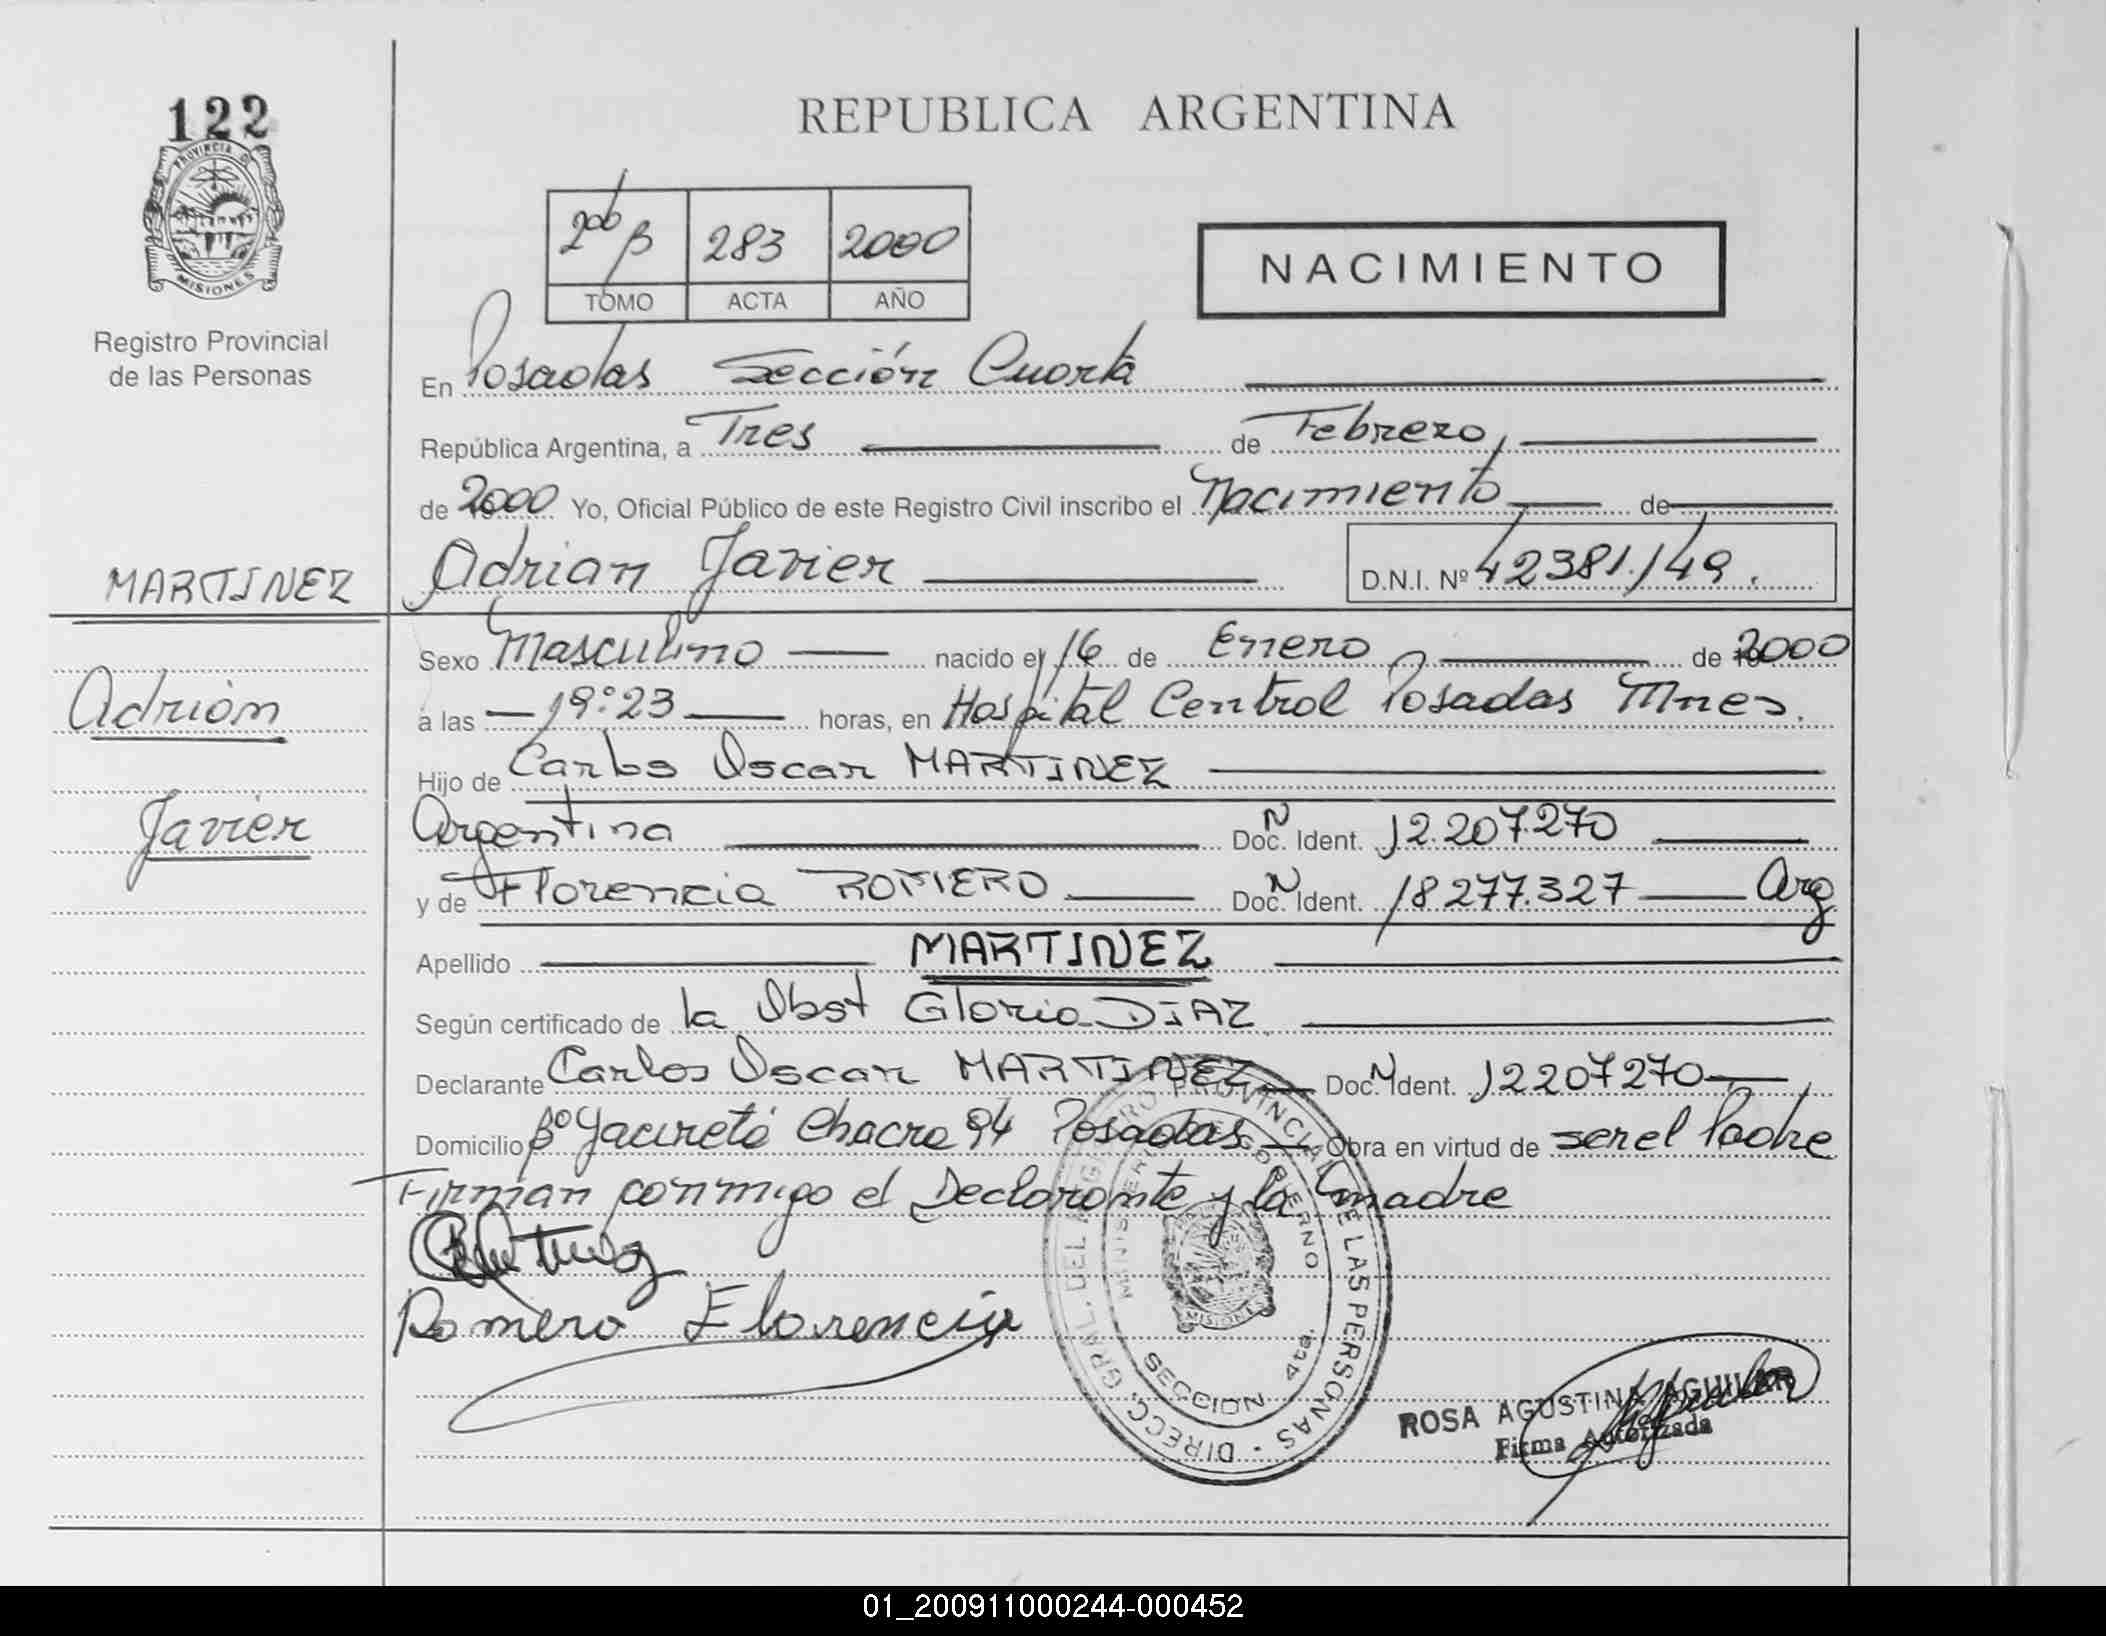 122
PROVINCIA D
MISIONES
Registro Provincial
de las Personas
MARTINEZ
Adrián
Javier
REPUBLICA ARGENTINA
283 2000
TOMO ACTA AÑO
NACIMIENTO
En Posadas Sección Cuarta
República Argentina, a Tres de Febrero,
de 2000 Yo, Oficial Público de este Registro Civil inscribo el Nacimiento de
Adrian Javier D.N.I. Nº 42381.149.
Sexo Masculino nacido el 16 de Enero de 2000
a las 19:23 horas, en Hospital Central Posadas Mnes.
Hijo de Carlos Oscar MARTINEZ
Argentina Doc. N Ident. 12.207.270
y de Florencia ROMERO Doc. N Ident. 18.277.327 Arg
Apellido MARTINEZ
Según certificado de la Obst Gloria DIAZ
Declarante Carlos Oscar MARTINEZ Doc. N Ident. 12207270
Domicilio Bº Yacireta Chacra 94 Posadas Obra en virtud de ser el Padre
Firman conmigo el Declarante y la madre
Romero Florencia
DIRECC. GRAL. DEL REGISTRO PROVINCIAL DE LAS PERSONAS
MINISTERIO DE GOBIERNO
MISIONES
SECCION 4ta.
ROSA AGUSTINA AGUILAR
Firma Autorizada
01_200911000244-000452